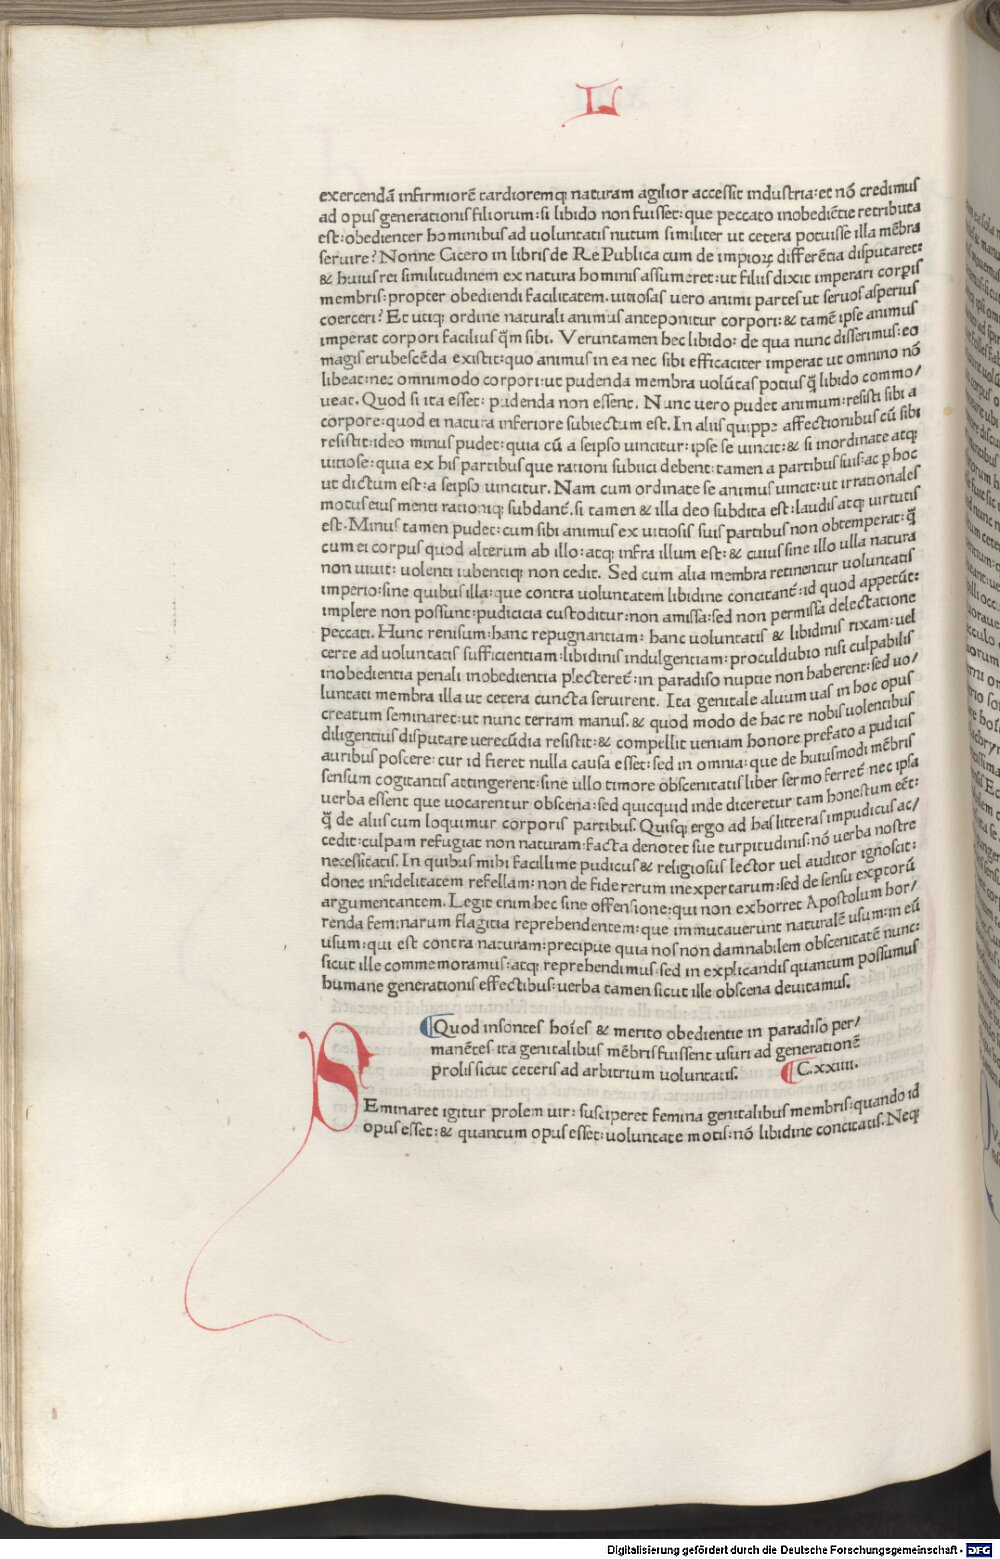 L
exercendā infirmiorē tardioremq; naturam agilior accessit industria: et nō credimus
ad opus generationis filiorum: si libido non fuisset: que peccato inobediētie retributa
est: obedienter hominibus ad uoluntatis nutum similiter ut cetera potuisse illa mēbra
seruire? Nonne Cicero in libris de Re Publica cum de imperioꝝ differētia disputaret:
& huius rei similitudinem ex natura hominis assumeret: ut filiis dixit imperari corꝑis
membris: propter obediendi facilitatem. uitiosas uero animi partes ut seruos asperius
coerceri? Et utiq; ordine naturali animus anteponitur corpori: & tamē ipse animus
imperat corpori facilius q̄m sibi. Veruntamen hec libido: de qua nunc disserimus: eo
magis erubescēda existit: quo animus in ea nec sibi efficaciter imperat ut omnino nō
libeat: nec omnimodo corpori: ut pudenda membra uolūtas potius q̄ libido commo/
ueat. Quod si ita esset: pudenda non essent. Nunc uero pudet animum: resisti sibi a
corpore: quod ei natura inferiore subiectum est. In aliis quippe affectionibus cū sibi
resistit: ideo minus pudet: quia cū a seipso uincitur: ipse se uincit: & si inordinate atq;
uitiose: quia ex his partibus que rationi subiici debent: tamen a partibus suis: ac ꝑ hoc
ut dictum est: a seipso uincitur. Nam cum ordinate se animus uincit: ut irrationales
motus eius menti rationiq; subdant̄. si tamen & illa deo subdita est: laudis atq; uirtutis
est. Minus tamen pudet: cum sibi animus ex uitiosis suis partibus non obtemperat: q̄
cum ei corpus quod alterum ab illo: atq; infra illum est: & cuius sine illo ulla natura
non uiuit: uolenti iubentiq; non cedit. Sed cum alia membra retinentur uoluntatis
imperio: sine quibus illa: que contra uoluntatem libidine concitant̄: id quod appetūt:
implere non possunt: pudicicia custoditur: non amissa: sed non permissa delectatione
peccati. Hunc renisum: hanc repugnantiam: hanc uoluntatis & libidinis rixam: uel
certe ad uoluntatis sufficientiam: libidinis indulgentiam: proculdubio nisi culpabilis
inobedientia penali inobedientia plecteret̄: in paradiso nuptie non haberent: sed uo/
luntati membra illa ut cetera cuncta seruirent. Ita genitale aluum uas in hoc opus
creatum seminaret: ut nunc terram manus. & quod modo de hac re nobis uolentibus
diligentius disputare uerecūdia resistit: & compellit ueniam honore prefato a pudicis
auribus poscere: cur id fieret nulla causa esset: sed in omnia: que de huiusmodi mēbris
sensum cogitantis attingerent: sine ullo timore obscenitatis liber sermo ferret̄ nec ipsa
uerba essent que uocarentur obscena: sed quicquid inde diceretur tam honestum eēt:
q̄ de aliis cum loquimur corporis partibus. Quisq; ergo ad has litteras impudicus ac/
cedit: culpam refugiat non naturam: facta denotet sue turpitudinis: nō uerba nostre
necessitatis. In quibus mihi facillime pudicus & religiosus lector uel auditor ignoscit:
donec infidelitatem refellam: non de fide rerum inexpertarum: sed de sensu exꝑtorū
argumentantem. Legit enim hec sine offensione: qui non exhorret Apostolum hor/
renda feminarum flagitia reprehendentem: que immutauerunt naturalē usum: in eū
usum: qui est contra naturam: precipue quia nos non damnabilem obscenitatē nunc:
sicut ille commemoramus: atq; reprehendimus: sed in explicandis quantum possumus
humane generationis effectibus: uerba tamen sicut ille obscena deuitamus.
¶ Quod insontes hoīes & merito obedientie in paradiso per/
manētes ita genitalibus mēbris fuissent usuri ad generationē
prolis sicut ceteris ad arbitrium uoluntatis. ¶ C. xxiiii.
SEminaret igitur prolem uir: susciperet femina genitalibus membris: quando id
opus esset: & quantum opus esset: uoluntate motis: nō libidine concitatis. Neq;
Digitalisierung gefördert durch die Deutsche Forschungsgemeinschaft - DFG